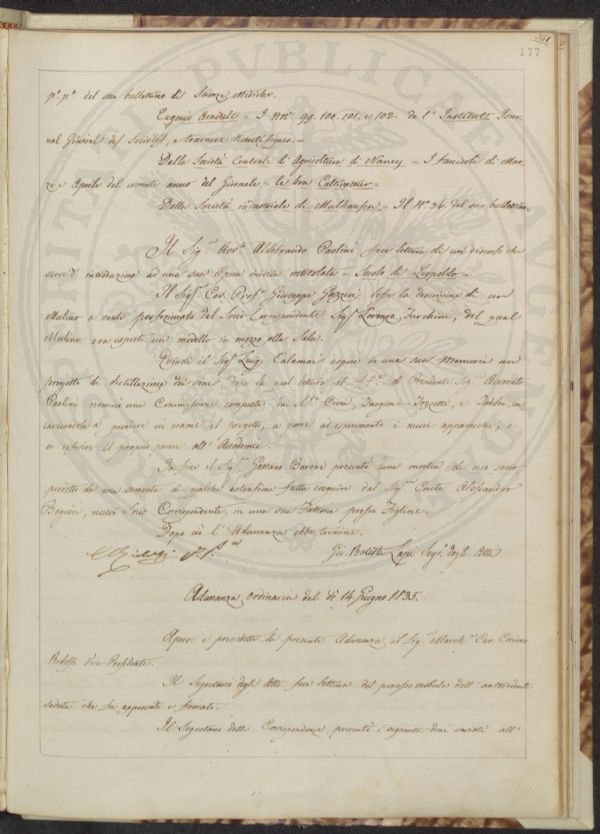 177
p.º p.º del suo bullettino di Scienze Mediche.
Eugenio N.ri 99. 100. 101. e 102. de l' Institut Jour
nal Général des Sociétés, e travaux scientifiques.
Dalla Società Centrale di Agricoltura di Nancy - I fascicoli di Mar
zo e Aprile del corrente anno del Giornale - le bon Cultivateur -
Dalla Società industriale di Mulhausen - Il N.º 36. del suo bullettino.
Il Sig.r Avv.to Aldobrando Paolini fece lettura di un discorso che
serve d' introduzione ad una sua Opera inedita intitolata - Secolo di Leopoldo -
Il Sig.r Cav. Prof.r Giuseppe Gazzeri lesse la descrizione di un
Mulino a vento perfezionato dal Socio Corrispondente Sig.r Lorenzo Turchini, del qual
Mulino era esposto un modello in mezzo alla Sala.
Quindi il Sig.r Luigi Calamai espose in una sua Memoria un
progetto di distillazione dei vini, dopo la qual lettura il Presidente Sig.r Avvocato
Paolini nominò una Commissione composta dai Targioni-Tozzetti, e Taddei, in
caricandola a prendere in esame il progetto, a porre ad esperimento i nuovi apparecchi, e
a riferire il proprio parere all' Accademia.
In fine il Sig.r Gaetano Baroni presentò una mostra di
prodotto da una sementa di qualche estensione fatta eseguire dal Sig.r Conte Alessandro
nostro Socio Corrispondente, in una sua Fattoria presso Figline.
Dopo ciò l' Adunanza ebbe termine.
C. Ridolfi Gio. Batista Lapi Segr.º degli Atti
Adunanza ordinaria del dì 14 Giugno 1835.
Aprì e presiedette la presente Adunanza, il Sig.r March.e Cav. Cosimo
Ridolfi Vice-Presidente.
Il Segretario degli Atti fece lettura del processo verbale dell' antecedente
seduta che fu approvato e firmato.
Il Segretario delle Corrispondenze presentò i seguenti doni inviati all'